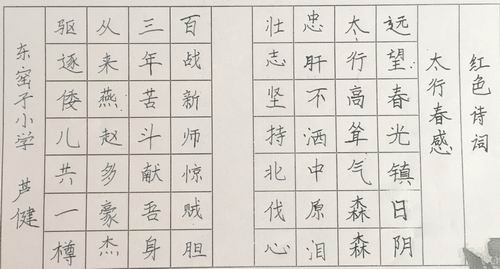 红色诗词
太行春感
远望春光镇日阴
太行高耸气森森
忠肝不洒中原泪
壮志坚持北伐心
百战新师惊贼胆
三年苦斗献吾身
从来燕赵多豪杰
驱逐倭儿共一樽
东窑子小学 芦健